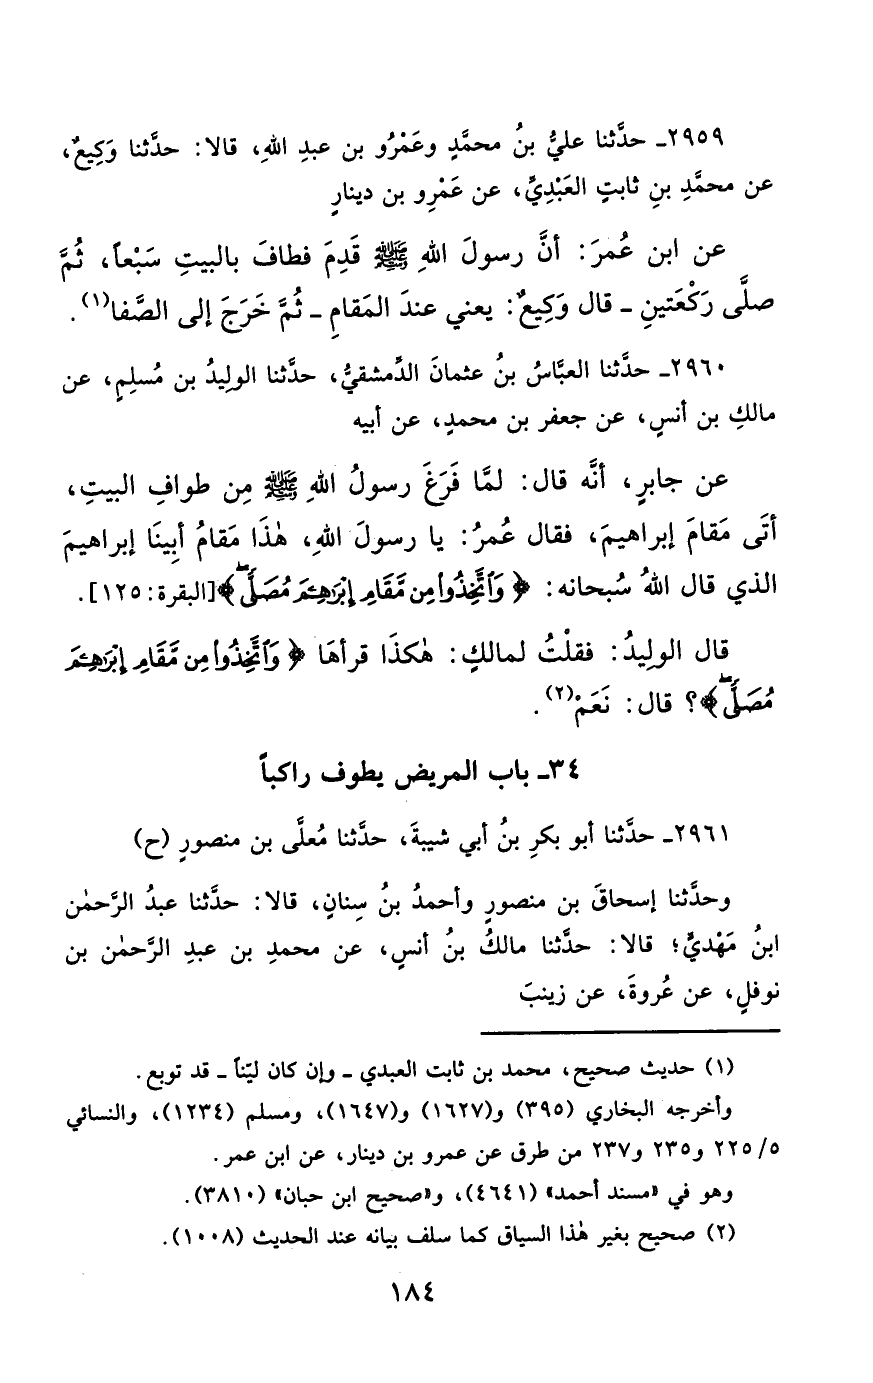 ٢٩٥٩ـ حدَّثنا عليُّ بنُ محمَّدٍ وعَمْرُو بن عبدِ اللهِ، قالا: حدَّثنا وَكِيعٌ،
عن محمَّدِ بنِ ثابتٍ العَبْدِيِّ، عن عَمْرِو بن دينارٍ
عن ابن عُمرَ: أنَّ رسولَ اللهِ ﷺ قَدِمَ فطافَ بالبيتِ سَبْعاً، ثُمَّ
صلَّى رَكْعَتينِ ـ قال وَكِيعٌ: يعني عندَ المَقامِ ـ ثُمَّ خَرَجَ إلى الصَّفا(١).
٢٩٦٠ـ حدَّثنا العبَّاسُ بنُ عثمانَ الدِّمشقيُّ، حدَّثنا الولِيدُ بن مُسلِمٍ، عن
مالكِ بن أنسٍ، عن جعفر بن محمدٍ، عن أبيه
عن جابرٍ، أنَّه قال: لمَّا فَرَغَ رسولُ اللهِ ﷺ مِن طوافِ البيتِ،
أتَى مَقامَ إبراهيمَ، فقال عُمرُ: يا رسولَ اللهِ، هٰذَا مَقامُ أبِينَا إبراهيمَ
الذي قال اللهُ سُبحانه: ﴿وَٱتَّخِذُواْ مِن مَّقَامِ إِبْرَٰهِـۧمَ مُصَلًّىۖ﴾ [البقرة: ١٢٥].
قال الولِيدُ: فقلْتُ لمالكٍ: هٰكذَا قرأهَا ﴿وَٱتَّخِذُواْ مِن مَّقَامِ إِبْرَٰهِـۧمَ
مُصَلًّىۖ﴾؟ قال: نَعَمْ(٢).
٣٤ـ باب المريض يطوف راكباً
٢٩٦١ـ حدَّثنا أبو بكرِ بنُ أبي شيبةَ، حدَّثنا مُعلَّى بن منصورٍ (ح)
وحدَّثنا إسحاقَ بن منصورٍ وأحمدُ بنُ سِنانٍ، قالا: حدَّثنا عبدُ الرَّحمٰن
ابنُ مَهْديٍّ؛ قالا: حدَّثنا مالكُ بنُ أنسٍ، عن محمدِ بن عبدِ الرَّحمٰن بن
نوفلٍ، عن عُروةَ، عن زينبَ
(١) حديث صحيح، محمد بن ثابت العبدي ـ وإن كان ليّناً ـ قد توبع.
وأخرجه البخاري (٣٩٥) و(١٦٢٧) و(١٦٤٧)، ومسلم (١٢٣٤)، والنسائي
٥/ ٢٢٥ و٢٣٥ و٢٣٧ من طرق عن عمرو بن دينار، عن ابن عمر.
وهو في «مسند أحمد» (٤٦٤١)، و«صحيح ابن حبان» (٣٨١٠).
(٢) صحيح بغير هٰذا السياق كما سلف بيانه عند الحديث (١٠٠٨).
١٨٤